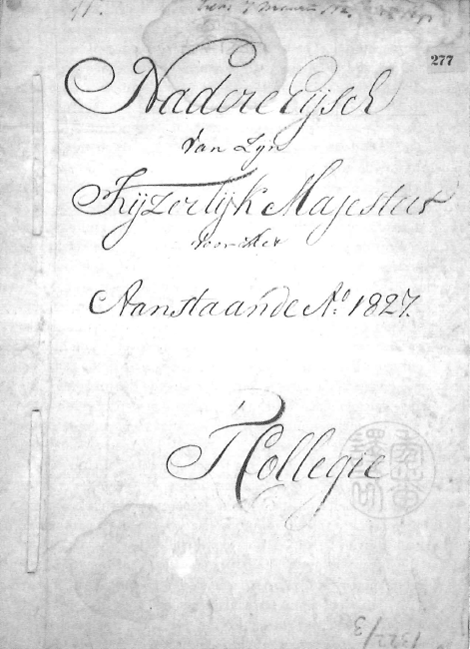 277
Nadere Eijsch
van Zyn
Kyzerlijk Majesteit
voor het
Aanstaande Aº: 1827.
T Collegie